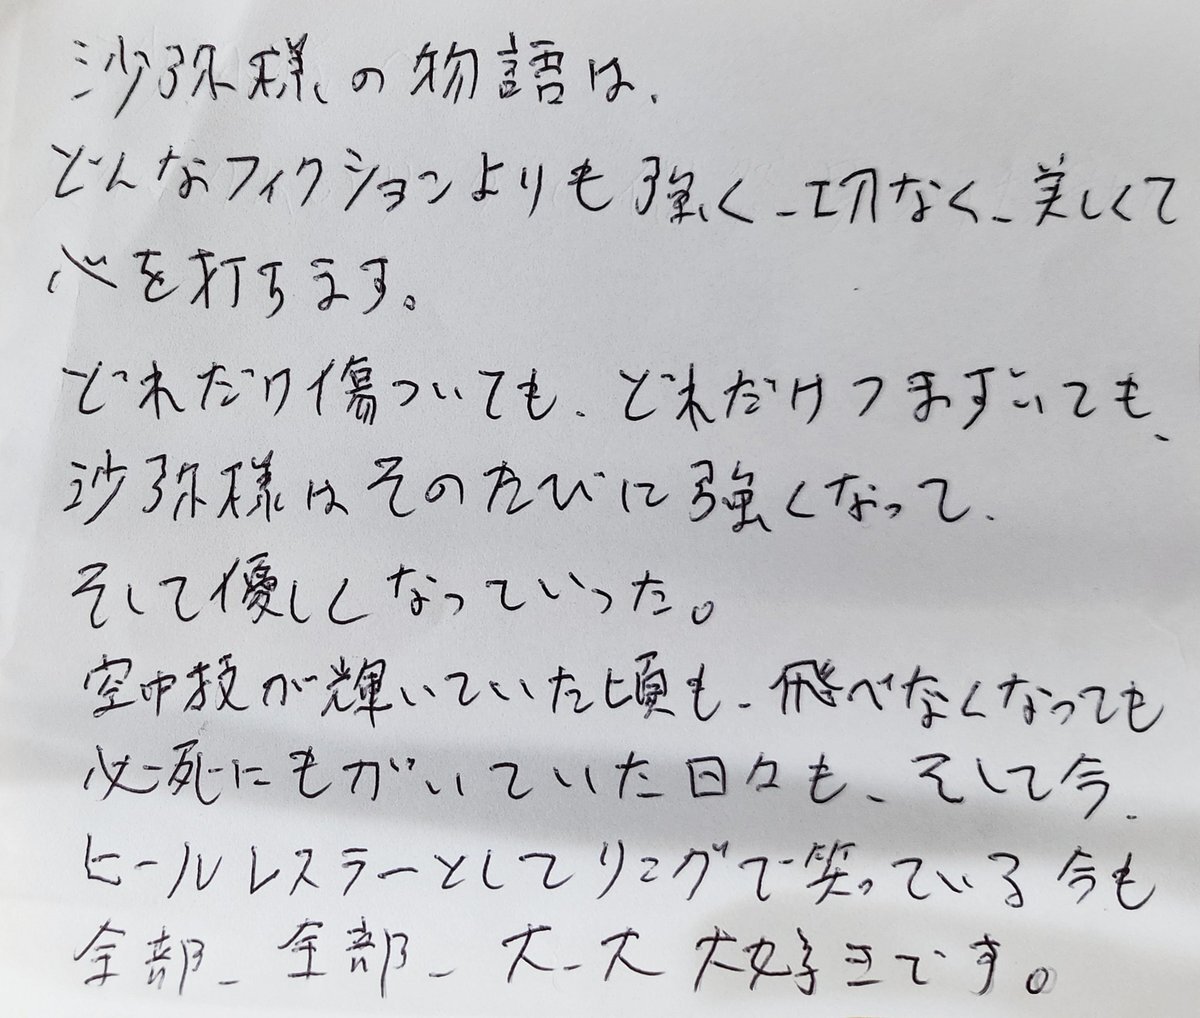 沙弥様の物語は、
どんなフィクションよりも強く、切なく、美しくて
心を打ちます。
どれだけ傷ついても、どれだけつまずいても、
沙弥様はそのたびに強くなって、
そして優しくなっていった。
空中技が輝いていた頃も、飛べなくなっても
必死にもがいていた日々も、そして今、
ヒールレスラーとしてリングで笑っている今も
全部、全部、大、大大好きです。